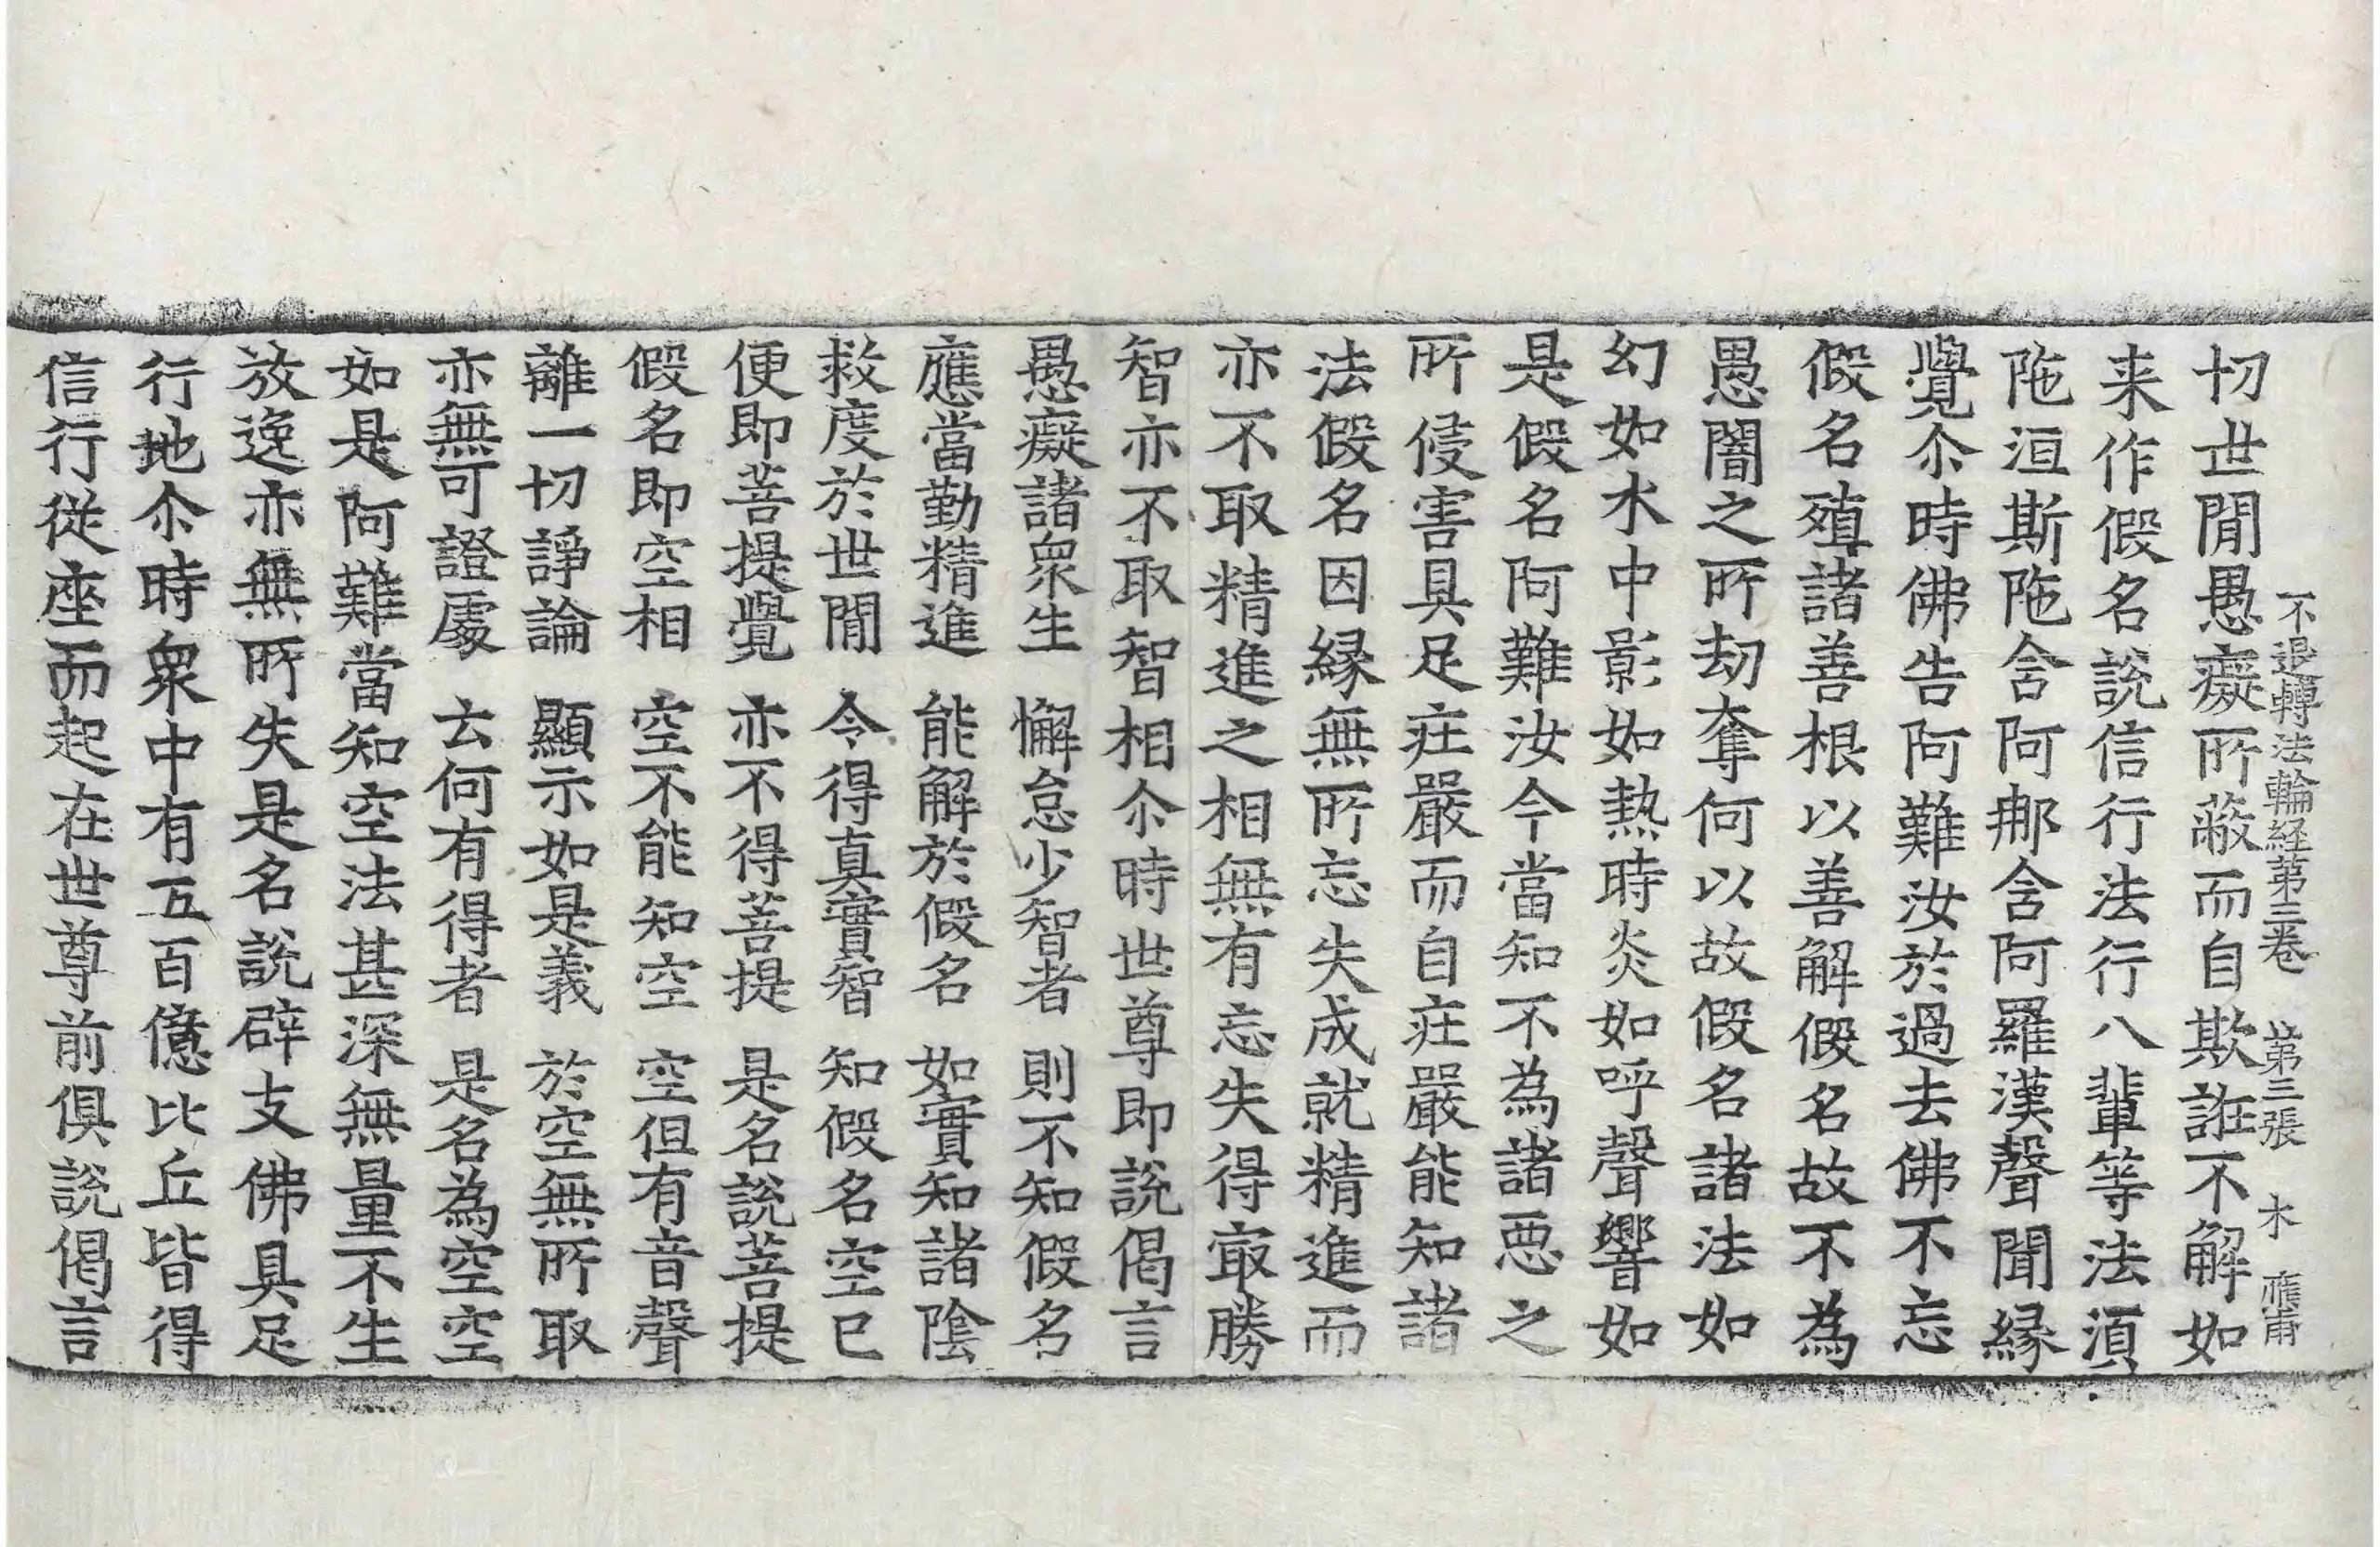 不退轉法輪経第三巻 第三張 木 應甫
切世閒愚癡所蔽而自欺誑不解如
来作假名說信行行法行八輩等法湏
陁洹斯陁含阿那含阿羅漢聲聞縁
覺尒時佛告阿難汝於過去佛不忘
假名殖諸善根以善解假名故不為
愚闇之所劫奪何以故假名諸法如
幻如水中影如熱時炎如呼聲響如
是假名阿難汝今當知不為諸惡之
所侵害具足莊嚴而自莊嚴能知諸
法假名因縁無所忘失成就精進而
亦不取精進之相無有忘失得㝡勝
智亦不取智相尒時世尊即說偈言
愚癡諸衆生 懈怠少智者 則不知假名
應當勤精進 能解於假名 如實知諸陰
救度於世閒 令得真實智 知假名空已
便即菩提覺 亦不得菩提 是名說菩提
假名即空相 空不能知空 空但有音聲
離一切諍論 顯示如是義 於空無所取
亦無可證處 云何有得者 是名為空空
如是阿難當知空法甚深無量不生
放逸亦無所失是名說辟支佛具足
行地尒時衆中有五百億比丘皆得
信行從座而起在世尊前俱說偈言